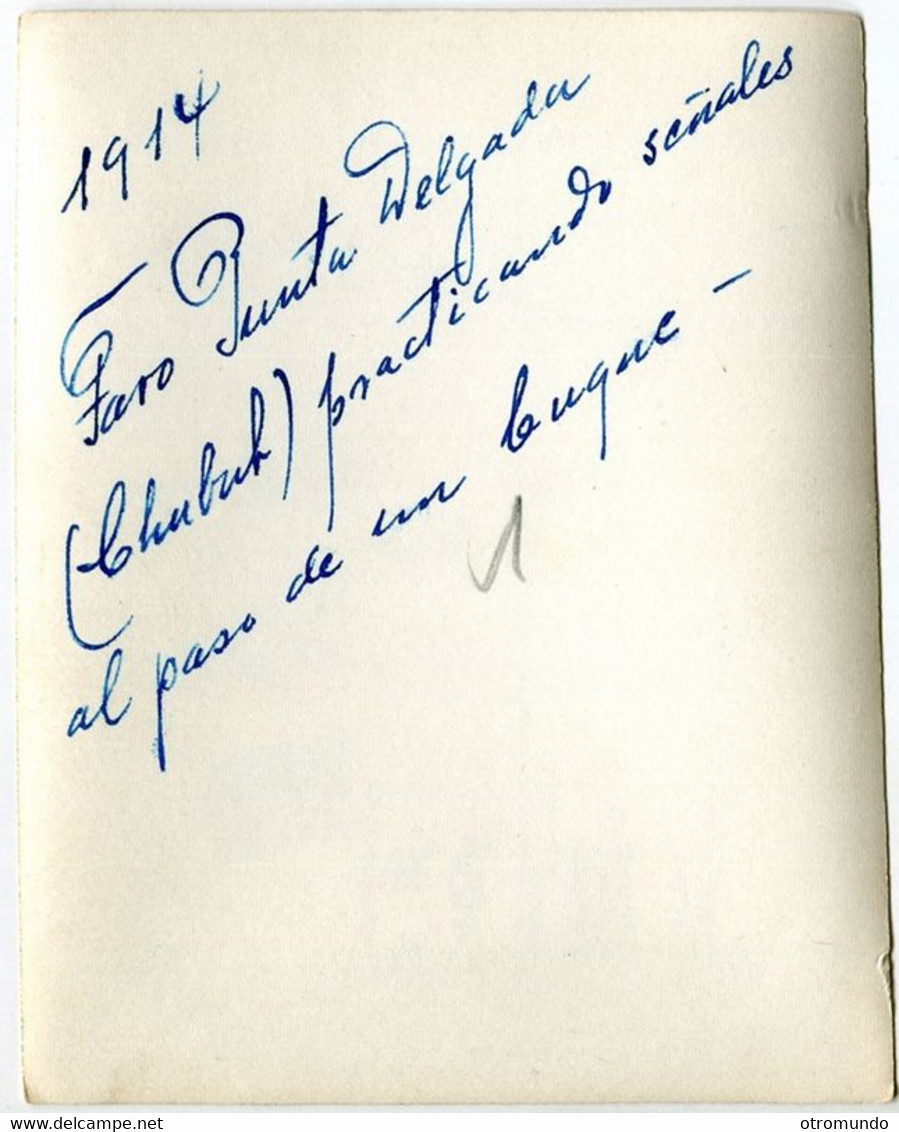 1914
Faro Punta Delgada
(Chubut) practicando señales
al paso de un buque -
1
delcampe.net
otromundo